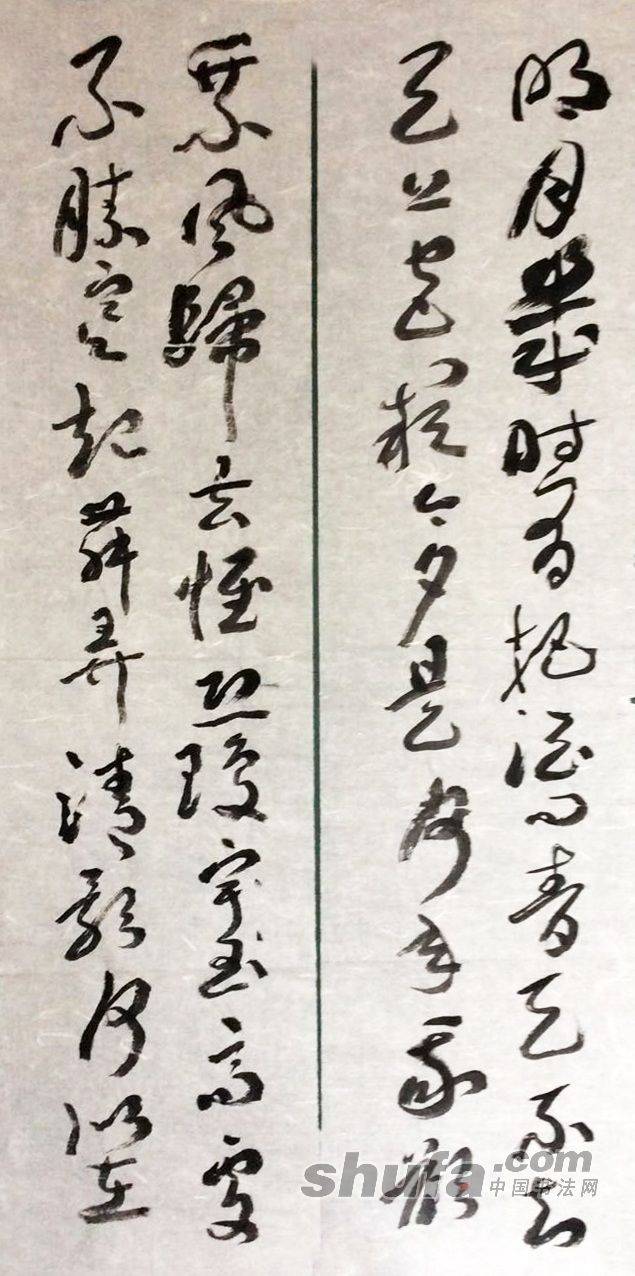 明月幾時有把酒問青天不知
天上宮闕今夕是何年我
乘風歸去惟恐瓊宇玉高處
不勝寒起舞弄清影何似在
shufa.com
中国书法网